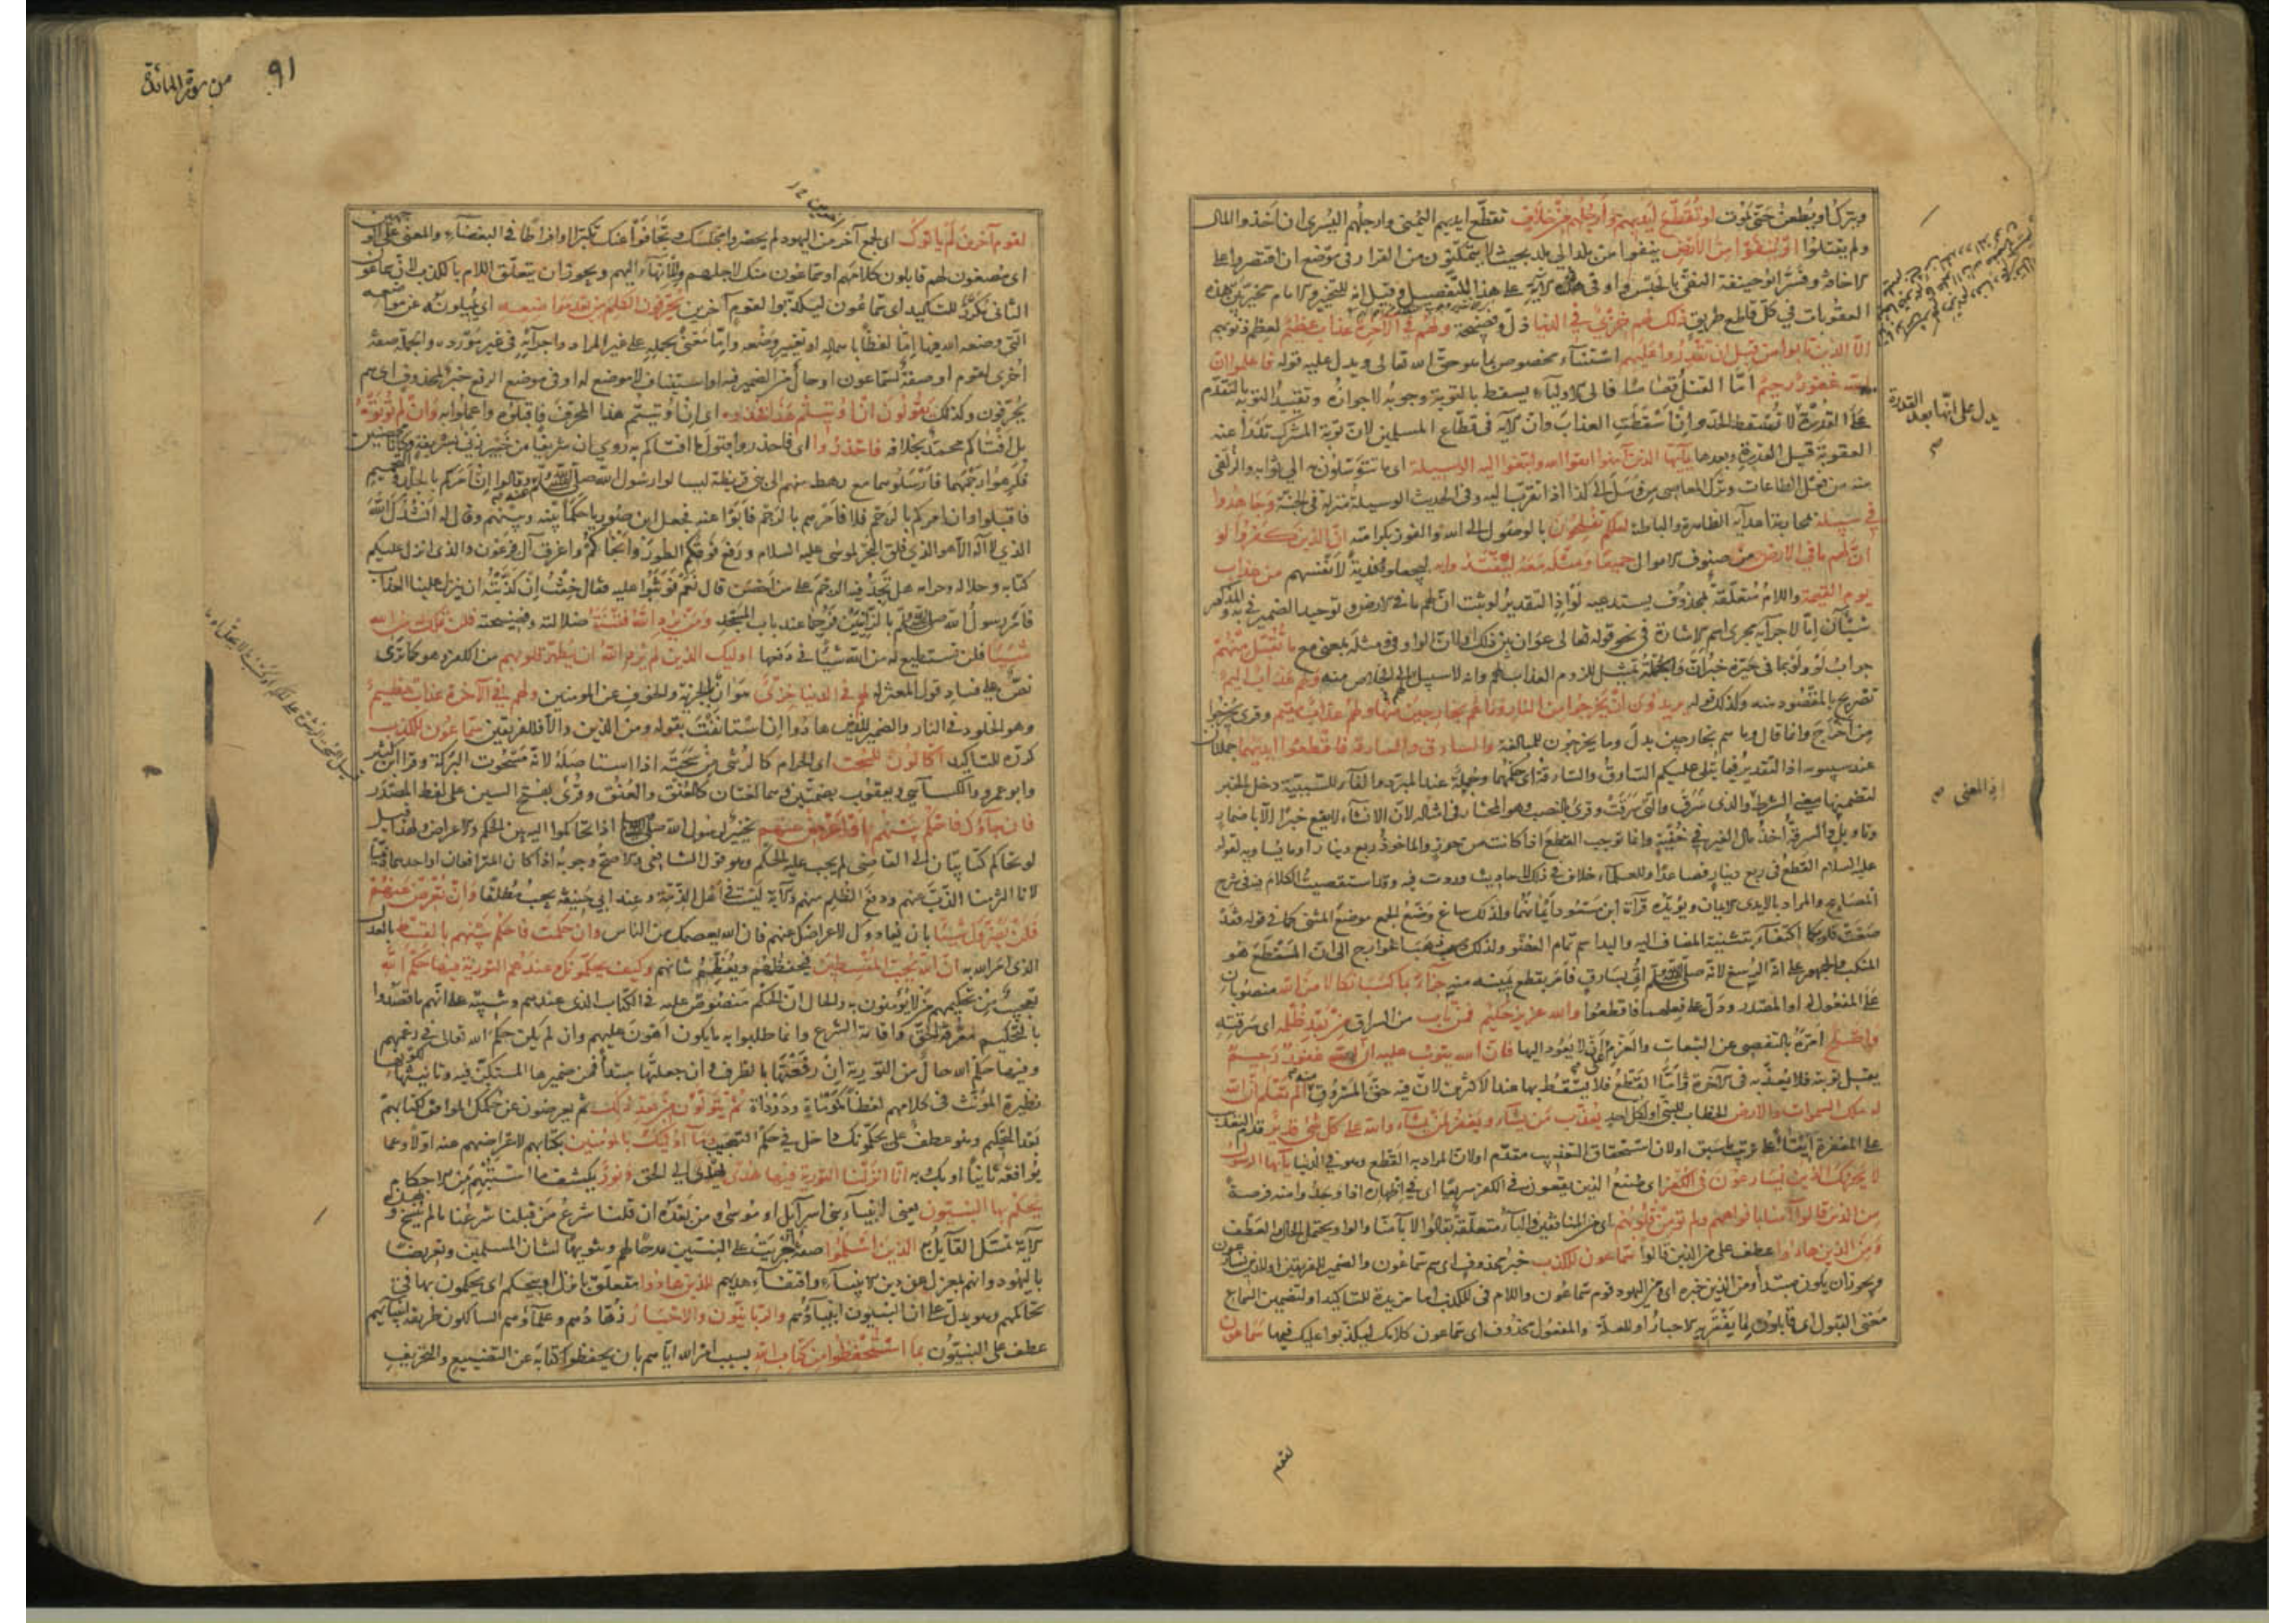 ويترك او يطعن حتى يموت او تقطع ايديهم وارجلهم من خلاف تقطع ايديهم اليمنى وارجلهم اليسرى ان اخذوا المال
ولم يقتلوا او ينفوا من الارض ينفوا من بلد الى بلد بحيث لا يتمكنون من القرار فى موضع ان اقتصروا على
الاخافة وفسر ابو حنيفة النفى بالحبس واو فى الآية على هذا للتفصيل وقيل انه للتخيير والامام مخير بين هذه
العقوبات فى كل قاطع طريق ذلك لهم خزى فى الدنيا ذل وفضيحة ولهم فى الآخرة عذاب عظيم لعظم ذنوبهم
الا الذين تابوا من قبل ان تقدروا عليهم استثناء مخصوص بما هو حق الله تعالى ويدل عليه قوله فاعلموا ان
الله غفور رحيم اما القتل قصاصا فالى الاولياء يسقط بالتوبة وجوبه لا جوازه وتقييد التوبة بالتقدم
على القدرة لا تسقط الحد وان اسقطت العذاب وان الآية فى قطاع المسلمين لان توبة المشرك تدرأ عنه
العقوبة قبل القدرة وبعدها يا ايها الذين آمنوا اتقوا الله وابتغوا اليه الوسيلة اى ما تتوسلون به الى ثوابه والزلفى
منه من فعل الطاعات وترك المعاصى من وسل الى كذا اذا تقرب اليه وفى الحديث الوسيلة منزلة فى الجنة وجاهدوا
فى سبيله بمحاربة اعدائه الظاهرة والباطنة لعلكم تفلحون بالوصول الى الله والفوز بكرامته ان الذين كفروا لو
ان لهم ما فى الارض من صنوف الاموال جميعا ومثله معه ليفتدوا به ليجعلوه فدية لانفسهم من عذاب
يوم القيمة واللام متعلقة بمحذوف يستدعيه لو اذ التقدير لو ثبت ان لهم ما فى الارض وتوحيد الضمير فى به والمذكور
شيئان اما لاجرائه مجرى اسم الاشارة فى نحو قوله تعالى عوان بين ذلك او لان الواو فى ومثله بمعنى مع ما تقبل منهم
جواب لو ولو بما فى حيزه خبر ان والجملة تمثيل للزوم العذاب لهم وانه لا سبيل لهم الى الخلاص منه ولهم عذاب اليم
تصريح بالمقصود منه وكذلك قوله يريدون ان يخرجوا من النار وما هم بخارجين منها ولهم عذاب مقيم وقرئ يخرجوا
من اخرج وانما قال وما هم بخارجين بدل وما يخرجون للمبالغة والسارق والسارقة فاقطعوا ايديهما جملتان
عند سيبويه اذ التقدير فيما يتلى عليكم السارق والسارقة اى حكمهما وجملة عند المبرد والفاء للسببية دخل الخبر
لتضمنهما معنى الشرط والذى سرق والتى سرقت وقرئ بالنصب وهو المختار فى امثاله لان الانشاء لا يقع خبرا الا باضمار
وتاويل والسرقة اخذ مال الغير فى خفية وانما توجب القطع اذا كانت من حرز والماخوذ ربع دينار او ما يساويه لقوله
عليه السلام القطع فى ربع دينار فصاعدا وللعلماء خلاف فى ذلك لاحاديث وردت فيه وقد استقصيت الكلام فيه فى شرح
المصابيح والمراد بالايدى الايمان ويؤيده قراءة ابن مسعود ايمانهما ولذلك ساغ وضع الجمع موضع المثنى كما فى قوله فقد
صغت قلوبكما اكتفاء بتثنية المضاف اليه واليد اسم تمام العضو ولذلك ذهب الخوارج الى ان المقطع هو
المنكب والجمهور على انه الرسغ لانه صلى الله عليه وسلم اتى بسارق فامر بقطع يمينه منه جزاء بما كسبا نكالا من الله منصوبان
على المفعول له او المصدر ودل على فعلهما فاقطعوا والله عزيز حكيم فمن تاب من السراق من بعد ظلمه اى سرقته
واصلح امره بالتفصى عن التبعات والعزم على ان لا يعود اليها فان الله يتوب عليه ان الله غفور رحيم
يقبل توبته فلا يعذبه فى الآخرة واما القطع فلا يسقط بها عند الاكثرين لان فيه حق المسروق منه الم تعلم ان الله
له ملك السموات والارض الخطاب للنبى او لكل احد يعذب من يشاء ويغفر لمن يشاء والله على كل شئ قدير قدم التعذيب
على المغفرة ايتاء على ترتيب ما سبق او لان استحقاق التعذيب مقدم او لان المراد به القطع وهو فى الدنيا يا ايها الرسول
لا يحزنك الذين يسارعون فى الكفر اى صنع الذين يقعون فى الكفر سريعا اى فى اظهاره اذا وجدوا منه فرصة
من الذين قالوا آمنا بافواههم ولم تؤمن قلوبهم اى من المنافقين والباء متعلقة بقالوا لا بآمنا والواو يحتمل الحال والعطف
ومن الذين هادوا عطف على من الذين قالوا سماعون للكذب خبر محذوف اى هم سماعون والضمير للفريقين او للذين يسارعون
ويجوز ان يكون مبتدأ ومن الذين خبره اى من اليهود قوم سماعون واللام فى للكذب اما مزيدة للتاكيد او لتضمين السماع
معنى القبول اى قابلون لما يفتريه الاحبار او للعلة والمفعول محذوف اى سماعون كلامك ليكذبوا عليك فيها سماعون
يدل على انها بعد القدرة
اذ المعنى
لقوم
من سورة المائدة
٩١
لقوم آخرين لم ياتوك اى لجمع آخر من اليهود لم يحضروا مجلسك وتجافوا عنك تكبرا او افراطا فى البغضاء والمعنى على الوجهين
اى مصغون لهم قابلون كلامهم او سماعون منك لاجلهم وللانهاء اليهم ويجوز ان يتعلق اللام بالكذب لان سماعون
الثانى مكرر للتاكيد اى سماعون ليكذبوا لقوم آخرين يحرفون الكلم من بعد مواضعه اى يميلونه عن مواضعه
التى وضعه الله فيها اما لفظا باهماله او تغيير وضعه واما معنى بحمله على غير المراد واجرائه فى غير مورده والجملة صفة
اخرى لقوم او صفة لسماعون او حال من الضمير فيه او استيناف لا موضع له او فى موضع الرفع خبر لمحذوف اى هم
يحرفون وكذلك يقولون ان اوتيتم هذا فخذوه اى ان اوتيتم هذا المحرف فاقبلوه واعملوا به وان لم تؤتوه
بل افتاكم محمد بخلافه فاحذروا اى فاحذروا قبول ما افتاكم به روى ان شريفا من خيبر زنى بشريفة وكانا محصنين
فكرهوا رجمهما فارسلوهما مع رهط منهم الى بنى قريظة ليسالوا رسول الله صلى الله عليه وسلم عنه وقالوا ان امركم بالجلد والتحميم
فاقبلوا وان امركم بالرجم فلا فامرهم بالرجم فابوا عنه فجعل ابن صوريا حكما بينه وبينهم وقال له انشدك الله
الذى لا اله الا هو الذى فلق البحر لموسى عليه السلام ورفع فوقكم الطور وانجاكم واغرق آل فرعون والذى انزل عليكم
كتابه وحلاله وحرامه هل تجد فيه الرجم على من احصن قال نعم فوثبوا عليه فقال خفت ان كذبته ان ينزل علينا العذاب
فامر رسول الله صلى الله عليه وسلم بالزانيين فرجما عند باب المسجد ومن يرد الله فتنته ضلالته وفضيحته فلن تملك له من الله
شيئا فلن تستطيع له من الله شيئا فى دفعها اوليك الذين لم يرد الله ان يطهر قلوبهم من الكفر وهو كما ترى
نص على فساد قول المعتزلة لهم فى الدنيا خزى هوان بالجزية والخوف عن المومنين ولهم فى الآخرة عذاب عظيم
وهو الخلود فى النار والضمير للذين هادوا ان استانفت بقوله ومن الذين والا فللفريقين سماعون للكذب
كرره للتاكيد اكالون للسحت اى الحرام كالرشى من سحته اذا استاصله لانه مسحوت البركة وقرا ابن كثير
وابو عمرو والكسائى ويعقوب بضمتين وهما لغتان كالعنق والعنق وقرئ بفتح السين على لفظ المصدر
فان جاؤك فاحكم بينهم او اعرض عنهم تخيير لرسول الله صلى الله عليه وسلم اذا تحاكموا اليه بين الحكم والاعراض ولهذا قيل
لو تحاكم كتابيان الى القاضى لم يجب عليه الحكم وهو قول الشافعى والاصح وجوبه اذا كان المترافعان او احدهما ذميا
لانا التزمنا الذب عنهم ودفع الظلم منهم والآية ليست فى اهل الذمة وعند ابى حنيفة يجب مطلقا وان تعرض عنهم
فلن يضروك شيئا بان يعادوك لاعراضك عنهم فان الله يعصمك من الناس وان حكمت فاحكم بينهم بالقسط بالعدل
الذى امر الله به ان الله يحب المقسطين فيحفظهم ويعظم شانهم وكيف يحكمونك وعندهم التورية فيها حكم الله
تعجيب من تحكيمهم من لا يؤمنون به والحال ان الحكم منصوص عليه فى الكتاب الذى عندهم وتنبيه على انهم ما قصدوا
بالتحكيم معرفة الحق واقامة الشرع وانما طلبوا به ما يكون اهون عليهم وان لم يكن حكم الله تعالى فى زعمهم
وفيها حكم الله حال من التورية ان رفعتها بالظرف وان جعلتها مبتدأ فمن ضميرها المستكن فيه وتانيثها لكونها
نظيرة المؤنث فى كلامهم لفظا كموماة ودوداة ثم يتولون من بعد ذلك ثم يعرضون عن حكمك الموافق لكتابهم
بعد التحكيم وهو عطف على يحكمونك داخل فى حكم التعجيب وما اوليك بالمومنين بكتابهم لاعراضهم عنه اولا وعما
يوافقه ثانيا او بك وبه انا انزلنا التورية فيها هدى يهدى الى الحق ونور يكشف ما استبهم من الاحكام
يحكم بها النبيون يعنى انبياء بنى اسرآئيل او موسى ومن بعده ان قلنا شرع من قبلنا شرعنا ما لم ينسخ وبهذه
الآية تمسك القائل به الذين اسلموا صفة اجريت على النبيين مدحا لهم وتنويها لشان المسلمين وتعريضا
باليهود وانهم بمعزل عن دين الانبياء واقتفاء هديهم للذين هادوا متعلق بانزل او بيحكم اى يحكمون بها فى
تحاكمهم وهو يدل على ان النبيون انبياؤهم والربانيون والاحبار زهادهم وعلماؤهم السالكون طريقة انبيائهم
عطف على النبيون بما استحفظوا من كتاب الله بسبب امر الله اياهم بان يحفظوا كتابه عن التضييع والتحريف